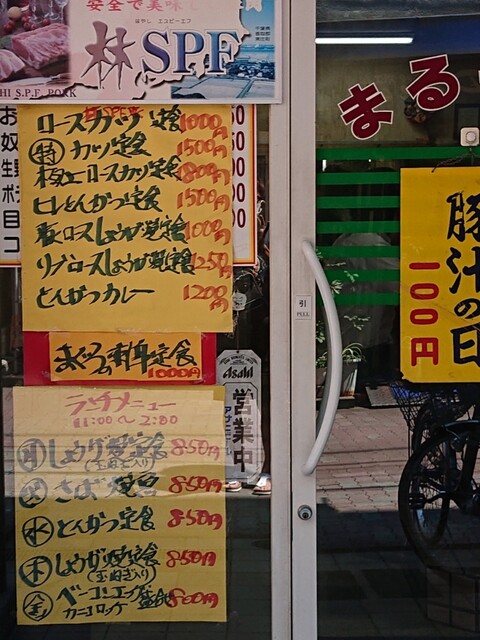 安全で美味し
はやし エスピーエフ
林SPF
S.P.F. PORK
ロースカツ定食 1000円
特カツ定食 1500円
極上ロースカツ定食 1800円
ヒレとんかつ定食 1500円
肩ロースしょうが焼定食 1000円
リブロースしょうが焼定食 1250円
とんかつカレー 1200円
まぐろ刺身定食
1000円
ランチメニュー
11:00〜2:00
月 しょうが焼定食 850円
(玉ねぎ入り)
火 さば 850円
水 とんかつ定食 850円
木 しょうが焼定食 850円
(玉ねぎ入り)
金 ベーコンエッグ
カニコロッケ 800円
Asahi
営業中
まる
引
PULL
豚汁の日
100円